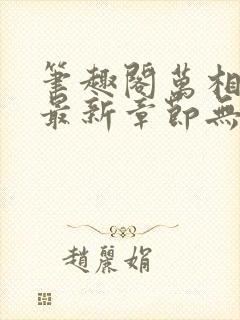 筆趣閣萬相
最新章節無
趙麗娟